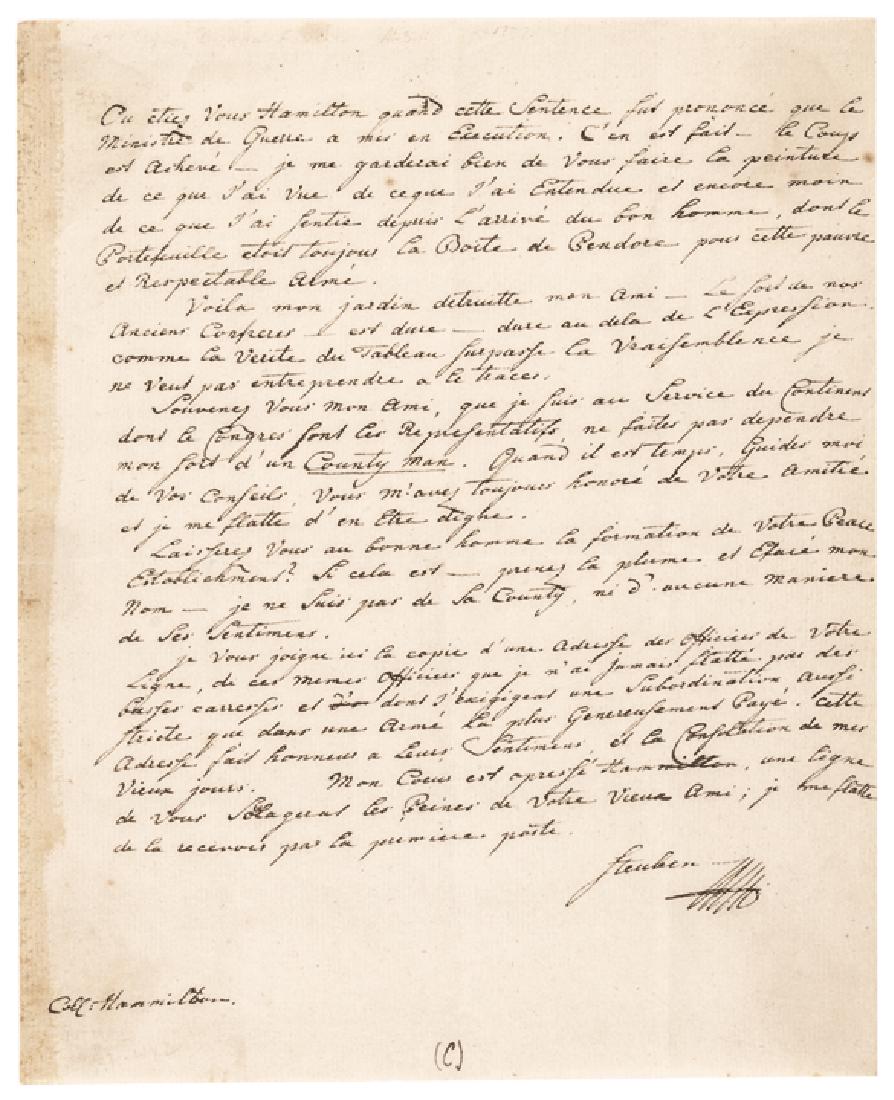 Ou eties Vous Hamilton quand cette Sentence fut prononcé que le
Ministre de Guerre a mis en Execution. C'en est fait — le Coup
est Achevé — je me garderai bien de Vous faire la peinture
de ce que J'ai Vue de ceque J'ai Entendue et encore moin
de ce que J'ai sentie depuis L'arrivé du bon homme, dont le
Portefuille etoit toujours la Boite de Pendore pour cette pauvre
et Respectable Armé.
Voila mon jardin detruitte mon Ami — Le sort de nos
Anciens Confreres — est dure — dure au dela de L'Expression.
comme la Verité du Tableau surpasse la Vraisemblence je
ne Veut pas entreprendre a le tracer.
Souvenez Vous mon Ami, que je suis au Service du Continent
dont le Congres sont les Representatifs, ne faites pas dependre
mon sort d'un County man. Quand il est temps, Guides moi
de Vos Conseils, Vous m'avez toujours honoré de Votre Amitié
et je me flatte d'en Etre digne.
Laisseres Vous au bonne homme la formation de Votre Peace
Etablichment? Si cela est — prenez la plume et Efacé mon
Nom — je ne suis pas de sa County, ni d'aucune Maniere
de Ses Sentimens.
je Vous joigne ici la copie d'une Adresse des Officiers de Votre
Ligne, de ces memes Officiers que je n'ai jamais flatté par des
basses carresses et dont J'exigigent une Subordination Aussi
stricte que dans une Armé la plus Genereusement Payé. Cette
Adresse fait honneur a Leurs Sentimens, et la Consolation de mes
Vieux jours. Mon Coeur est opressé Hammilton, une Ligne
de Vous Solagerat les Peines de Votre Vieux Ami; je me flatte
de la recevoir par la premiere poste.
Steuben
Coll: Hammilton.
(C)